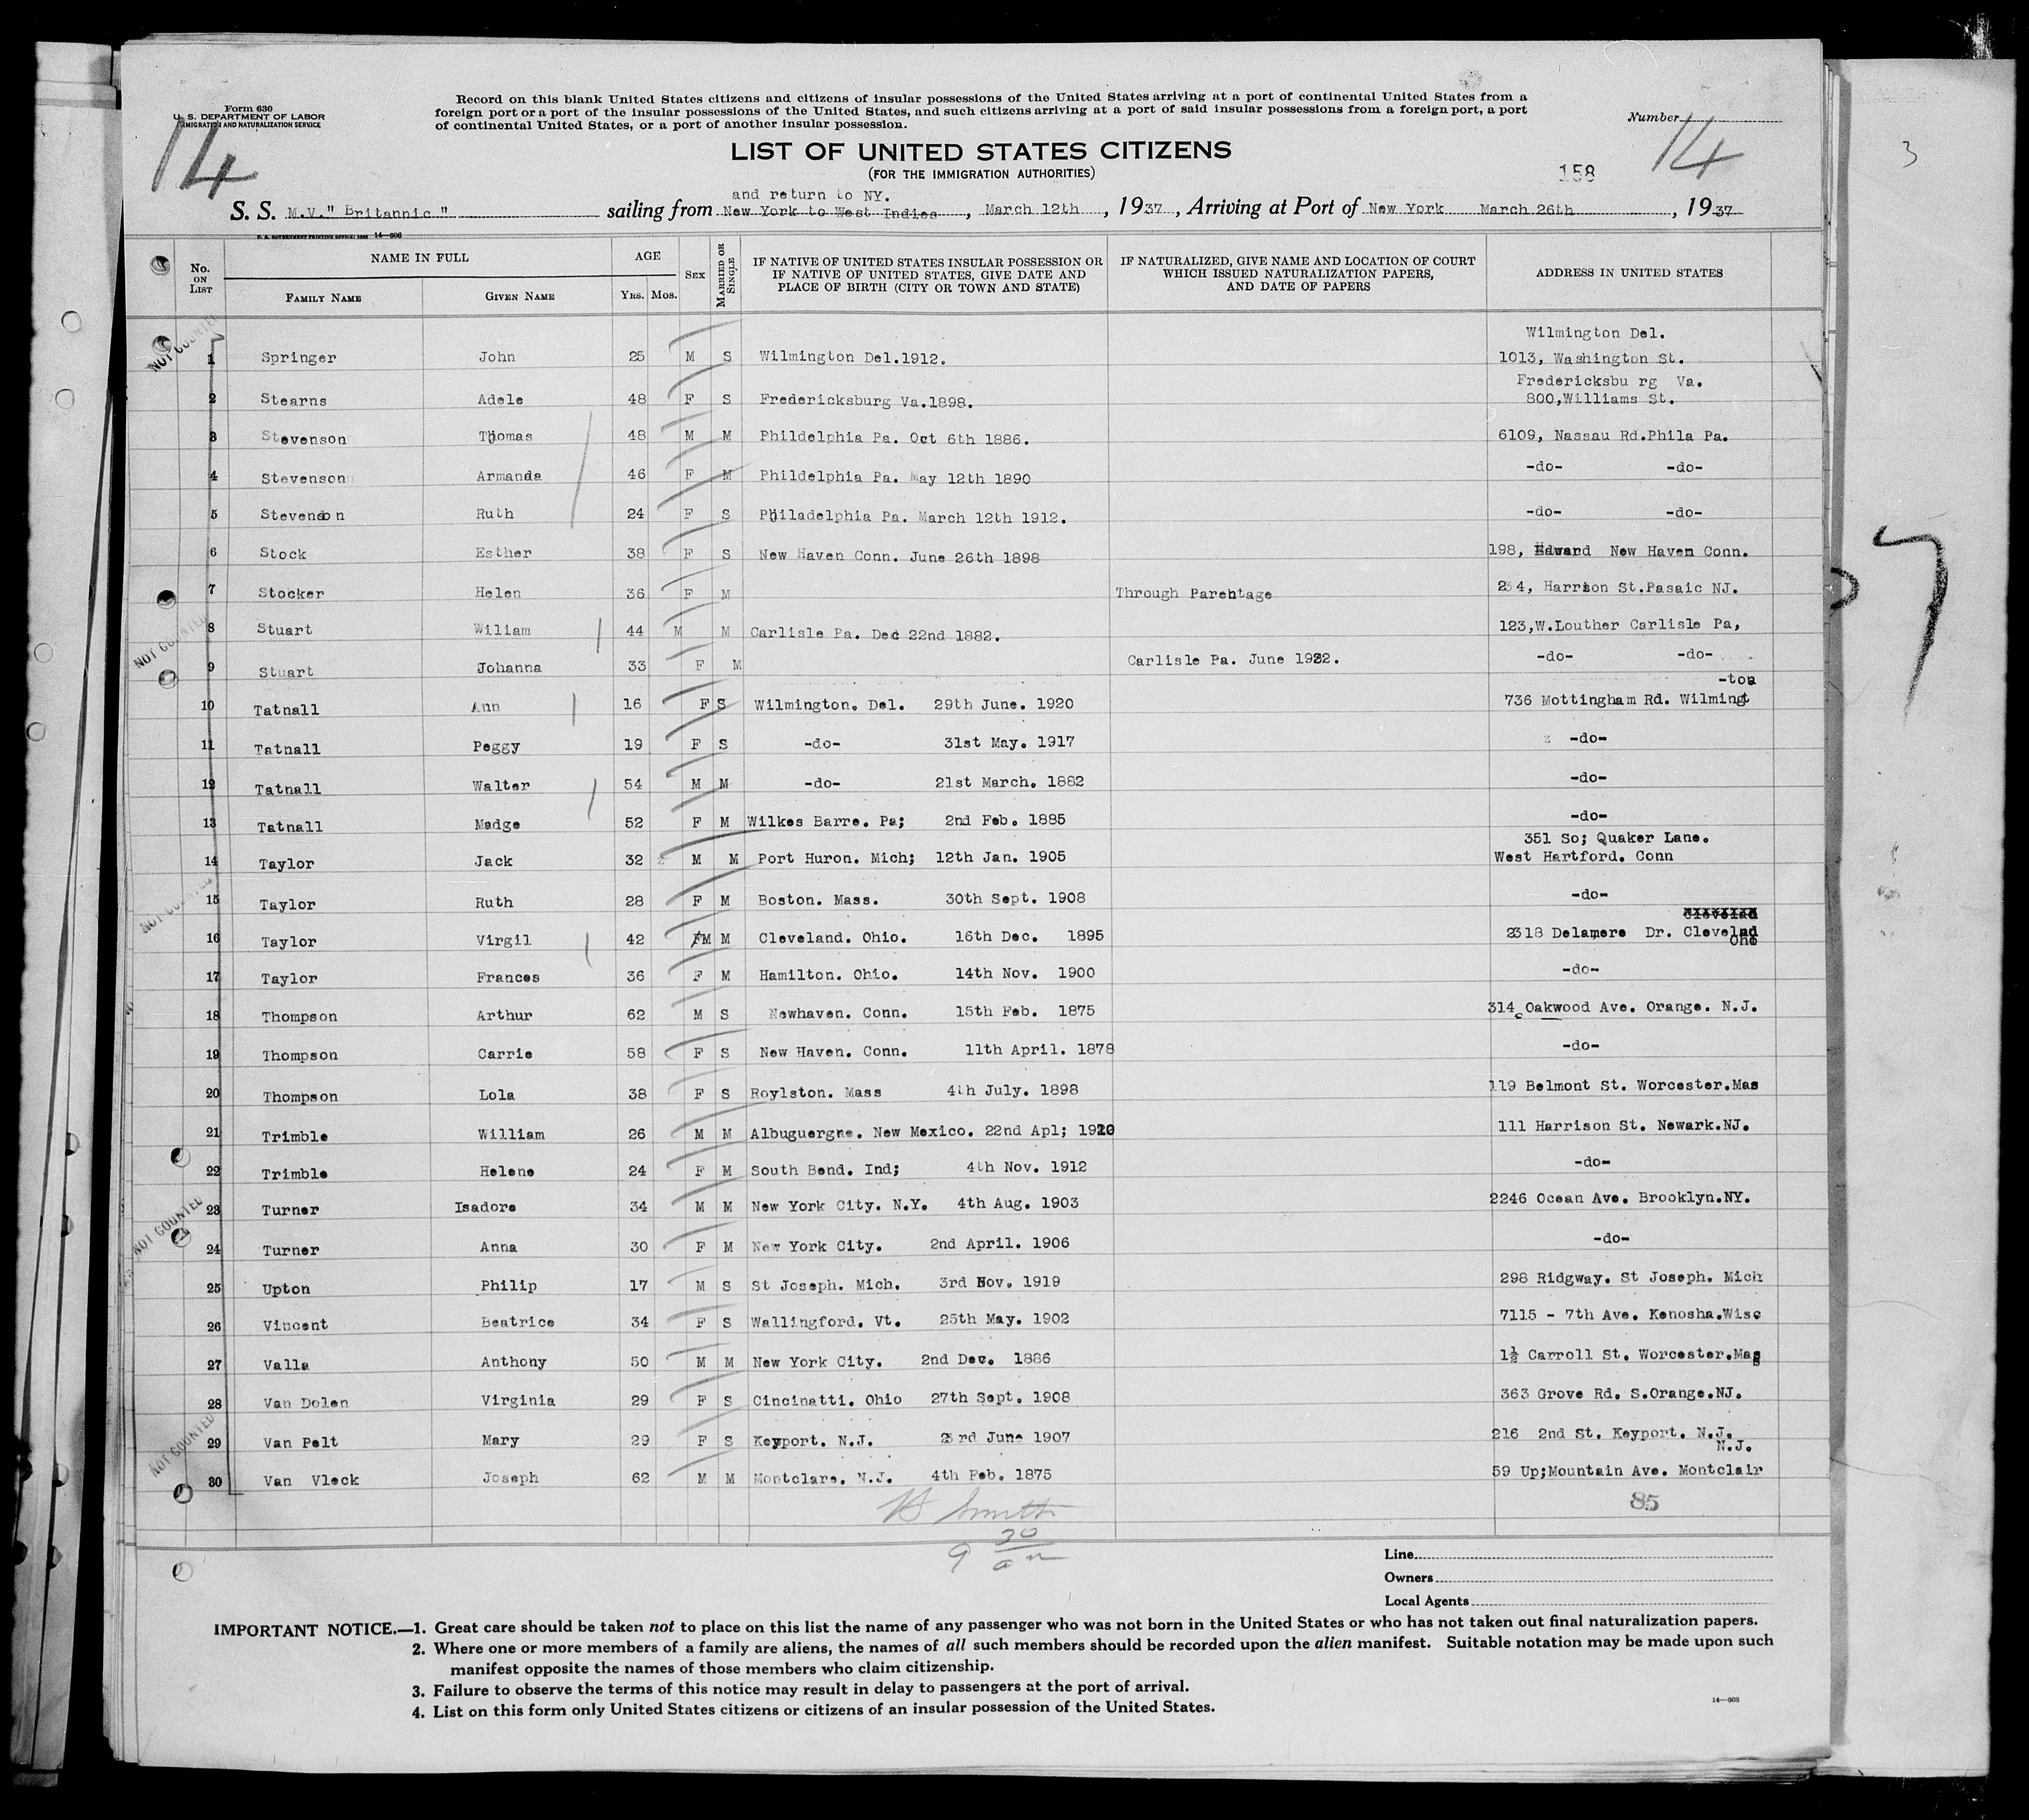 Form 630
U. S. DEPARTMENT OF LABOR
IMMIGRATION AND NATURALIZATION SERVICE
Record on this blank United States citizens and citizens of insular possessions of the United States arriving at a port of continental United States from a
foreign port or a port of the insular possessions of the United States, and such citizens arriving at a port of said insular possessions from a foreign port, a port
of continental United States, or a port of another insular possession.
Number
14
14
3
LIST OF UNITED STATES CITIZENS
(FOR THE IMMIGRATION AUTHORITIES)
158
and return to NY.
S. S. M.V." Britannic " sailing from New York to West Indies , March 12th , 1937 , Arriving at Port of New York March 26th , 1937
U. S. GOVERNMENT PRINTING OFFICE: 1935 14—608
No. ON LIST NAME IN FULL AGE SEX MARRIED OR SINGLE IF NATIVE OF UNITED STATES INSULAR POSSESSION OR IF NATIVE OF UNITED STATES, GIVE DATE AND PLACE OF BIRTH (CITY OR TOWN AND STATE) IF NATURALIZED, GIVE NAME AND LOCATION OF COURT WHICH ISSUED NATURALIZATION PAPERS, AND DATE OF PAPERS ADDRESS IN UNITED STATES
FAMILY NAME GIVEN NAME YRS. MOS.
NOT COUNTED
Wilmington Del.
1 Springer John 25 M S Wilmington Del.1912. 1013, Washington St.
Fredericksbu rg Va.
2 Stearns Adele 48 F S Fredericksburg Va.1898. 800,Williams St.
3 Stevenson Thomas 48 M M Phildelphia Pa. Oct 6th 1886. 6109, Nassau Rd.Phila Pa.
4 Stevenson Armanda 46 F M Phildelphia Pa. May 12th 1890 -do- -do-
5 Stevenson Ruth 24 F S Philadelphia Pa. March 12th 1912. -do- -do-
6 Stock Esther 38 F S New Haven Conn. June 26th 1898 198, New Haven Conn.
7 Stocker Helen 36 F M Through Parentage 254, Harrison St.Pasaic NJ.
8 Stuart Wiliam 44 M M Carlisle Pa. Dec 22nd 1882. 123,W.Louther Carlisle Pa,
NOT COUNTED
9 Stuart Johanna 33 F M Carlisle Pa. June 1932. -do- -do-
-ton
10 Tatnall Ann 16 F S Wilmington. Del. 29th June. 1920 736 Mottingham Rd. Wilmingt
11 Tatnall Peggy 19 F S -do- 31st May. 1917 -do-
12 Tatnall Walter 54 M M -do- 21st March. 1882 -do-
13 Tatnall Madge 52 F M Wilkes Barre. Pa; 2nd Feb. 1885 -do-
351 So; Quaker Lane.
14 Taylor Jack 32 M M Port Huron. Mich; 12th Jan. 1905 West Hartford. Conn
NOT COUNTED
15 Taylor Ruth 28 F M Boston. Mass. 30th Sept. 1908 -do-
16 Taylor Virgil 42 M M Cleveland. Ohio. 16th Dec. 1895 2318 Delamere Dr. Cleveland
Oho
17 Taylor Frances 36 F M Hamilton. Ohio. 14th Nov. 1900 -do-
18 Thompson Arthur 62 M S Newhaven. Conn. 15th Feb. 1875 314 Oakwood Ave. Orange. N.J.
19 Thompson Carrie 58 F S New Haven. Conn. 11th April. 1878 -do-
20 Thompson Lola 38 F S Roylston. Mass 4th July. 1898 119 Belmont St. Worcester.Mas
21 Trimble William 26 M M Albuguergne. New Mexico. 22nd Apl; 1910 111 Harrison St. Newark.NJ.
22 Trimble Helene 24 F M South Bend. Ind; 4th Nov. 1912 -do-
23 Turner Isadore 34 M M New York City. N.Y. 4th Aug. 1903 2246 Ocean Ave. Brooklyn.NY.
NOT COUNTED
24 Turner Anna 30 F M New York City. 2nd April. 1906 -do-
25 Upton Philip 17 M S St Joseph. Mich. 3rd Nov. 1919 298 Ridgway. St Joseph. Mich
26 Vincent Beatrice 34 F S Wallingford. Vt. 25th May. 1902 7115 - 7th Ave. Kenosha.Wisc
27 Valla Anthony 50 M M New York City. 2nd Dec. 1886 1½ Carroll St. Worcester.Mas
28 Van Dolen Virginia 29 F S Cincinatti. Ohio 27th Sept. 1908 363 Grove Rd. S.Orange.NJ.
29 Van Pelt Mary 29 F S Keyport. N.J. 23rd June 1907 216 2nd St. Keyport. N.J.
NOT COUNTED
N.J.
30 Van Vleck Joseph 62 M M Montclare. N.J. 4th Feb. 1875 59 Up;Mountain Ave. Montclair
85
Smith
9 30 am
Line
Owners
Local Agents
IMPORTANT NOTICE.—1. Great care should be taken not to place on this list the name of any passenger who was not born in the United States or who has not taken out final naturalization papers.
2. Where one or more members of a family are aliens, the names of all such members should be recorded upon the alien manifest. Suitable notation may be made upon such
manifest opposite the names of those members who claim citizenship.
3. Failure to observe the terms of this notice may result in delay to passengers at the port of arrival.
4. List on this form only United States citizens or citizens of an insular possession of the United States.
14—608